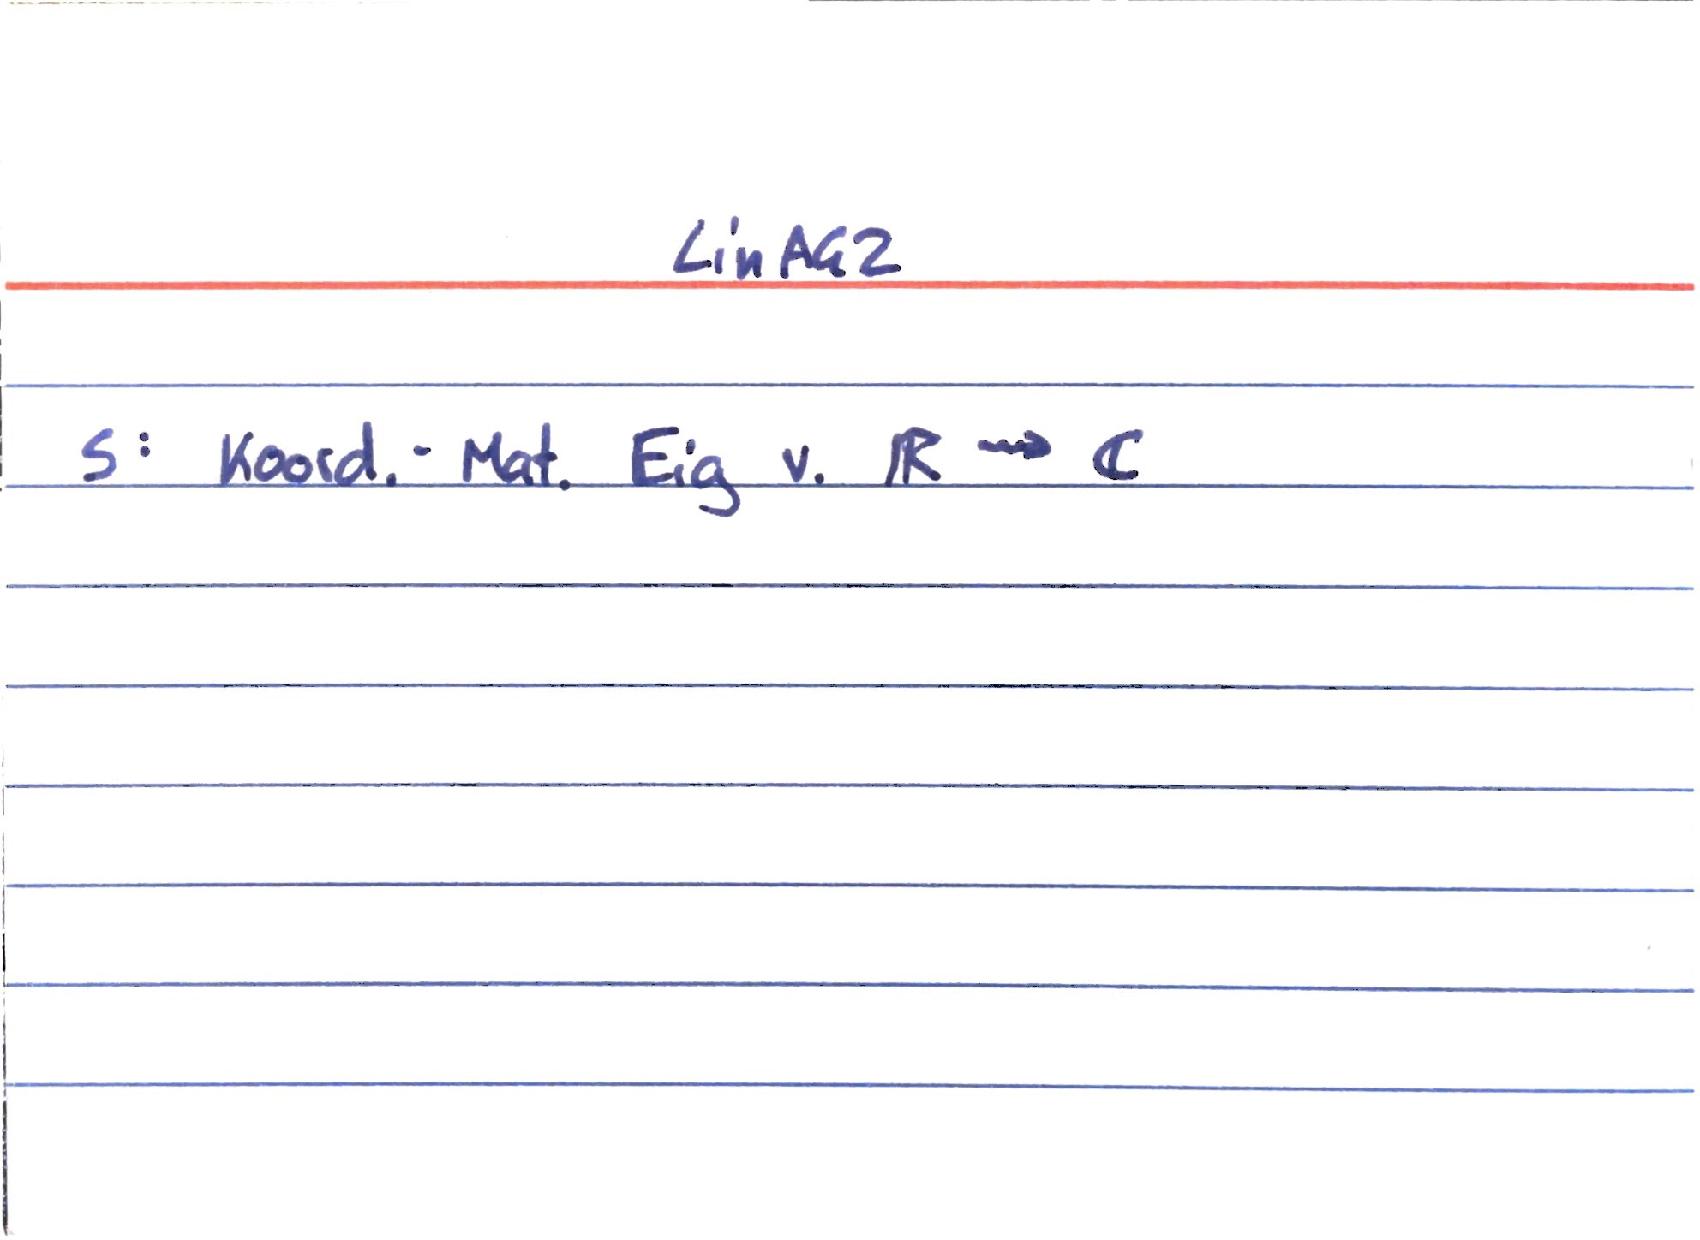 LinAG2
S: Koord.-Mat. Eig v. ℝ ⇝ ℂ